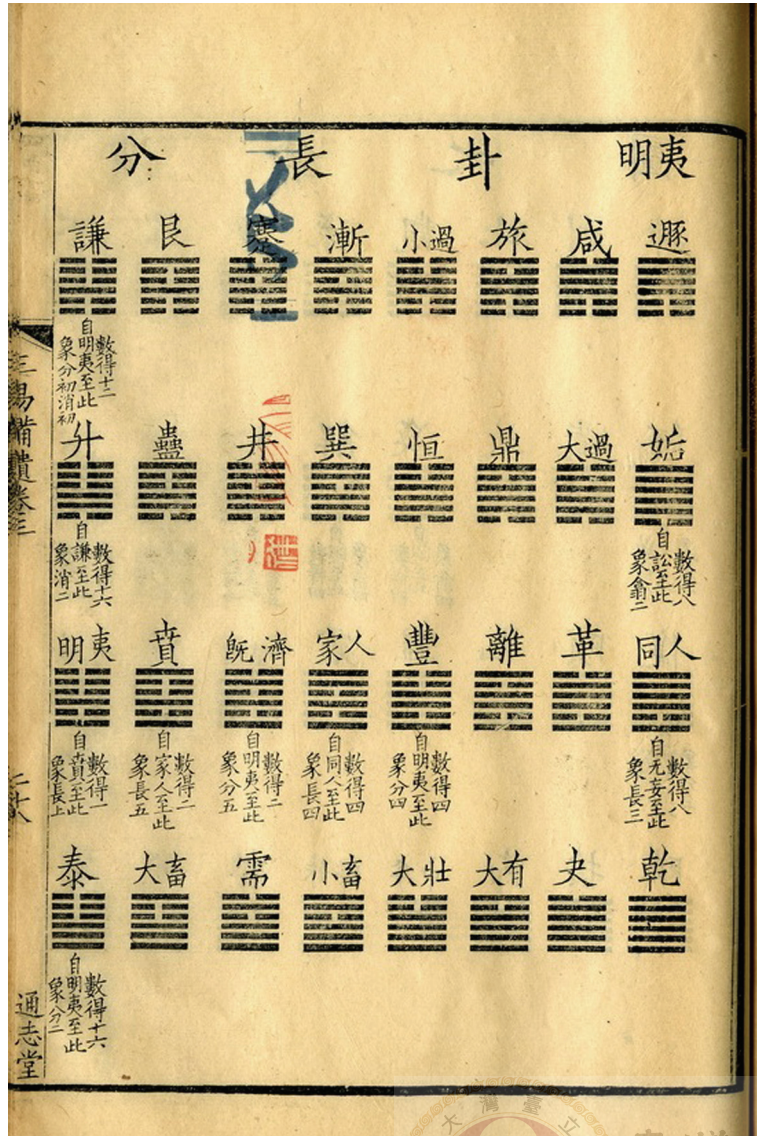 明夷卦長分
遯 咸 旅 小過 漸 蹇 艮 謙
數得十二
自明夷至此
象分初消初
姤 大過 鼎 恒 巽 井 蠱 升
數得八
自訟至此
象翕二
數得十六
自謙至此
象消二
同人 革 離 豐 家人 旣濟 賁 明夷
數得八
自无妄至此
象長三
數得四
自明夷至此
象分四
數得四
自同人至此
象長四
數得二
自明夷至此
象分五
數得二
自家人至此
象長五
數得一
自賁至此
象長上
乾 夬 大有 大壯 小畜 需 大畜 泰
數得十六
自明夷至此
象分二
三易備遺卷三
通志堂